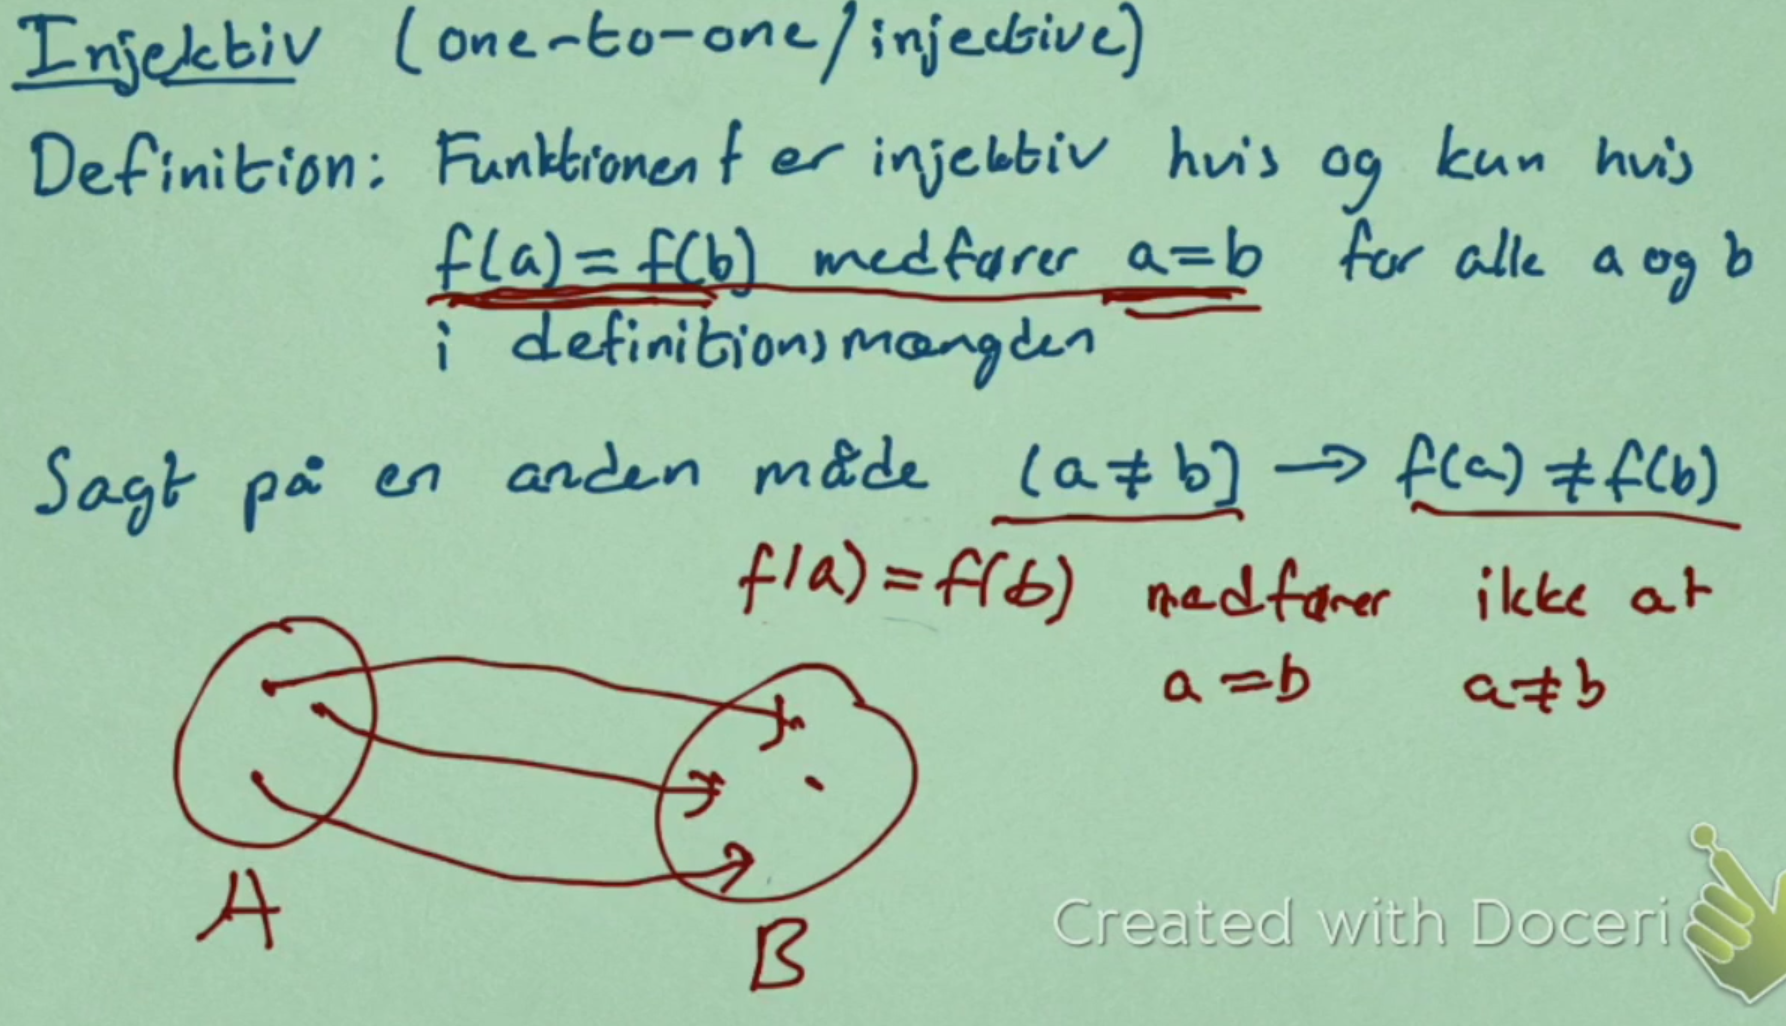 Injektiv (one-to-one/injective)
Definition: Funktionen f er injektiv hvis og kun hvis
f(a) = f(b) medfører a=b for alle a og b
i definitionsmængden
Sagt på en anden måde (a ≠ b] → f(a) ≠ f(b)
f(a) = f(b) medfører ikke at
a = b a ≠ b
A
B
Created with Doceri